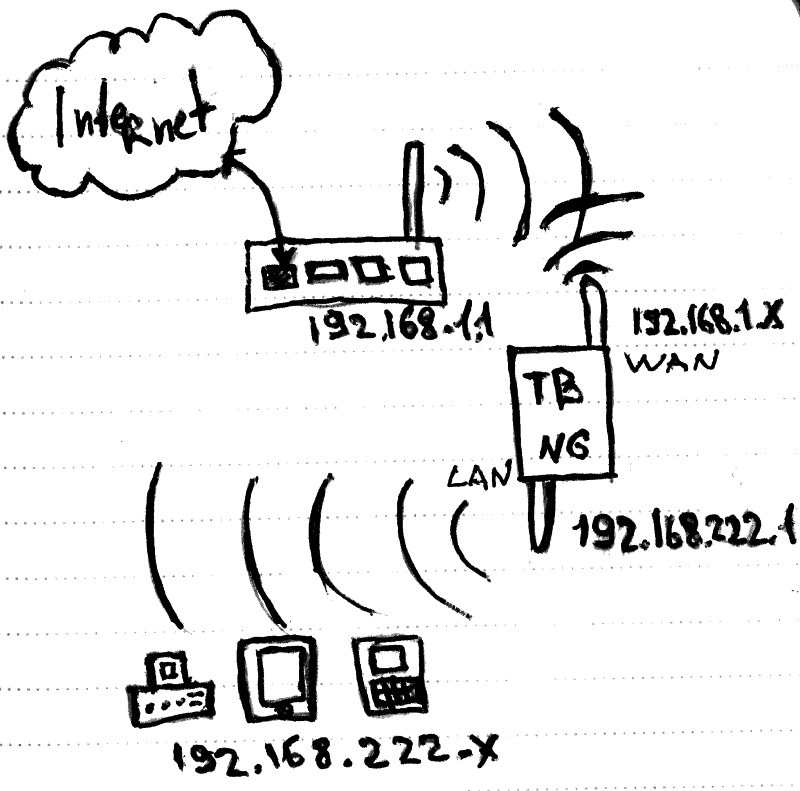 Internet
192.168.1.1
192.168.1.X
WAN
TB
NG
LAN
192.168.222.1
192.168.222.X